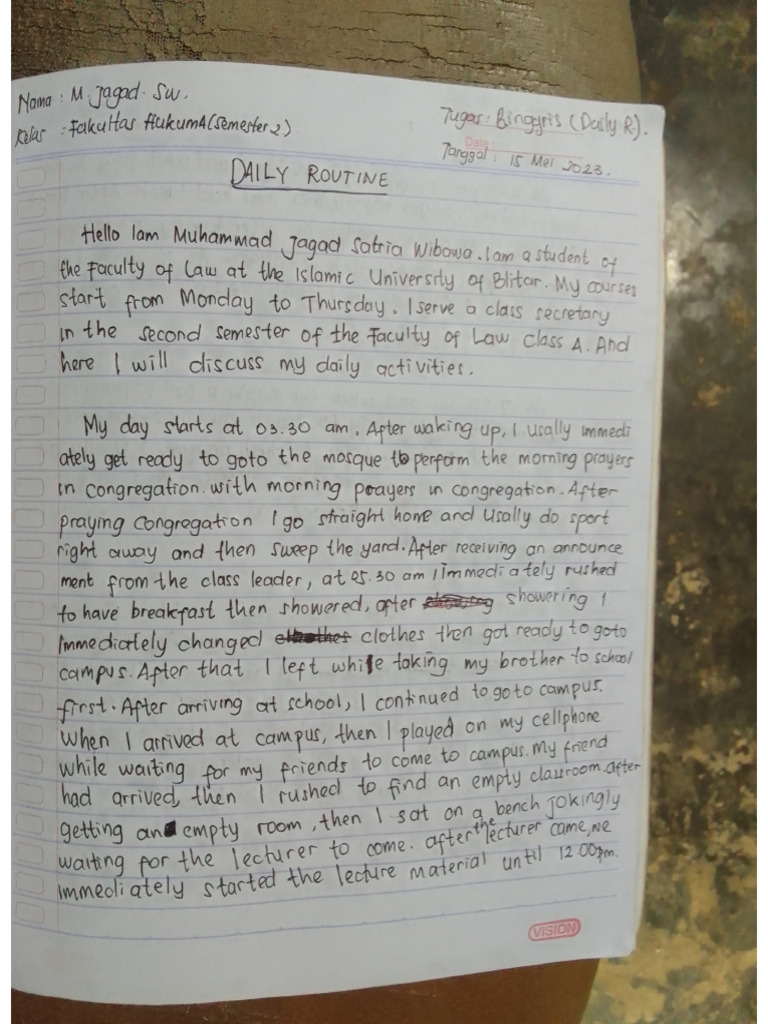 Nama : M. Jagad. SW.
Kelas : Fakultas Hukum A (Semester 2)
Tugas : Binggris (Daily R.).
Date :
Tanggal : 15 Mei 2023.
DAILY ROUTINE
Hello Iam Muhammad Jagad Satria Wibawa. Iam a student of
the Faculty of Law at the Islamic University of Blitar. My courses
start from Monday to Thursday. I serve a class secretary
in the second semester of the Faculty of Law Class A. And
here I will discuss my daily activities.
My day starts at 03.30 am. After waking up, I usally immedi
ately get ready to goto the mosque to perform the morning prayers
in congregation. with morning prayers in congregation. After
praying congregation I go straight home and usally do sport
right away and then sweep the yard. After receiving an announce
ment from the class leader, at 05.30 am I immediately rushed
to have breakfast then showered, after showering I
immediately changed clothes then got ready to goto
campus. After that I left while taking my brother to school
first. After arriving at school, I continued to goto campus.
When I arrived at campus, then I played on my cellphone
while waiting for my friends to come to campus. My friend
had arrived, then I rushed to find an empty classroom. after
getting an empty room, then I sat on a bench jokingly
waiting for the lecturer to come. after the lecturer came, we
immediately started the lecture material until 12.00 pm.
VISION